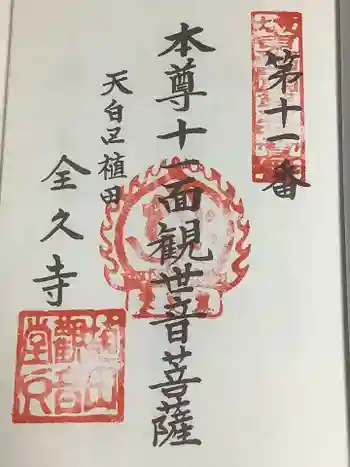 第十一番
本尊十一面観世音菩薩
天白区植田
全久寺
植田観音堂印